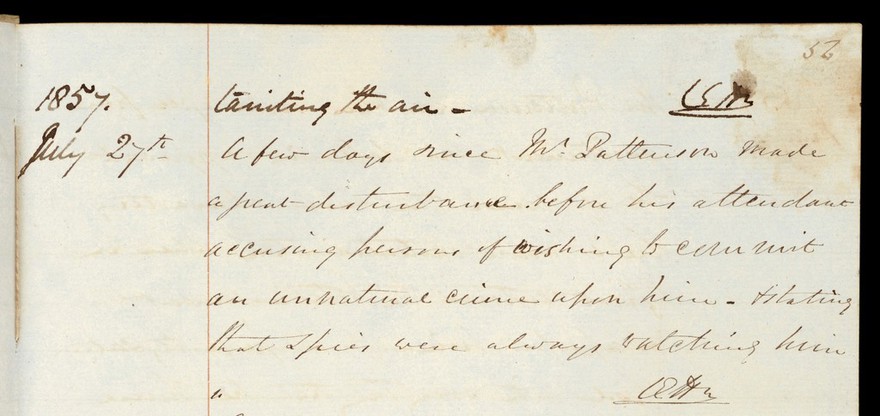 56
1857. tainting the air -
July 27th A few days since Mr. Pattenson made
a great disturbance before his attendant
accusing persons of wishing to commit
an unnatural crime upon him - & stating
that spies were always watching him
"